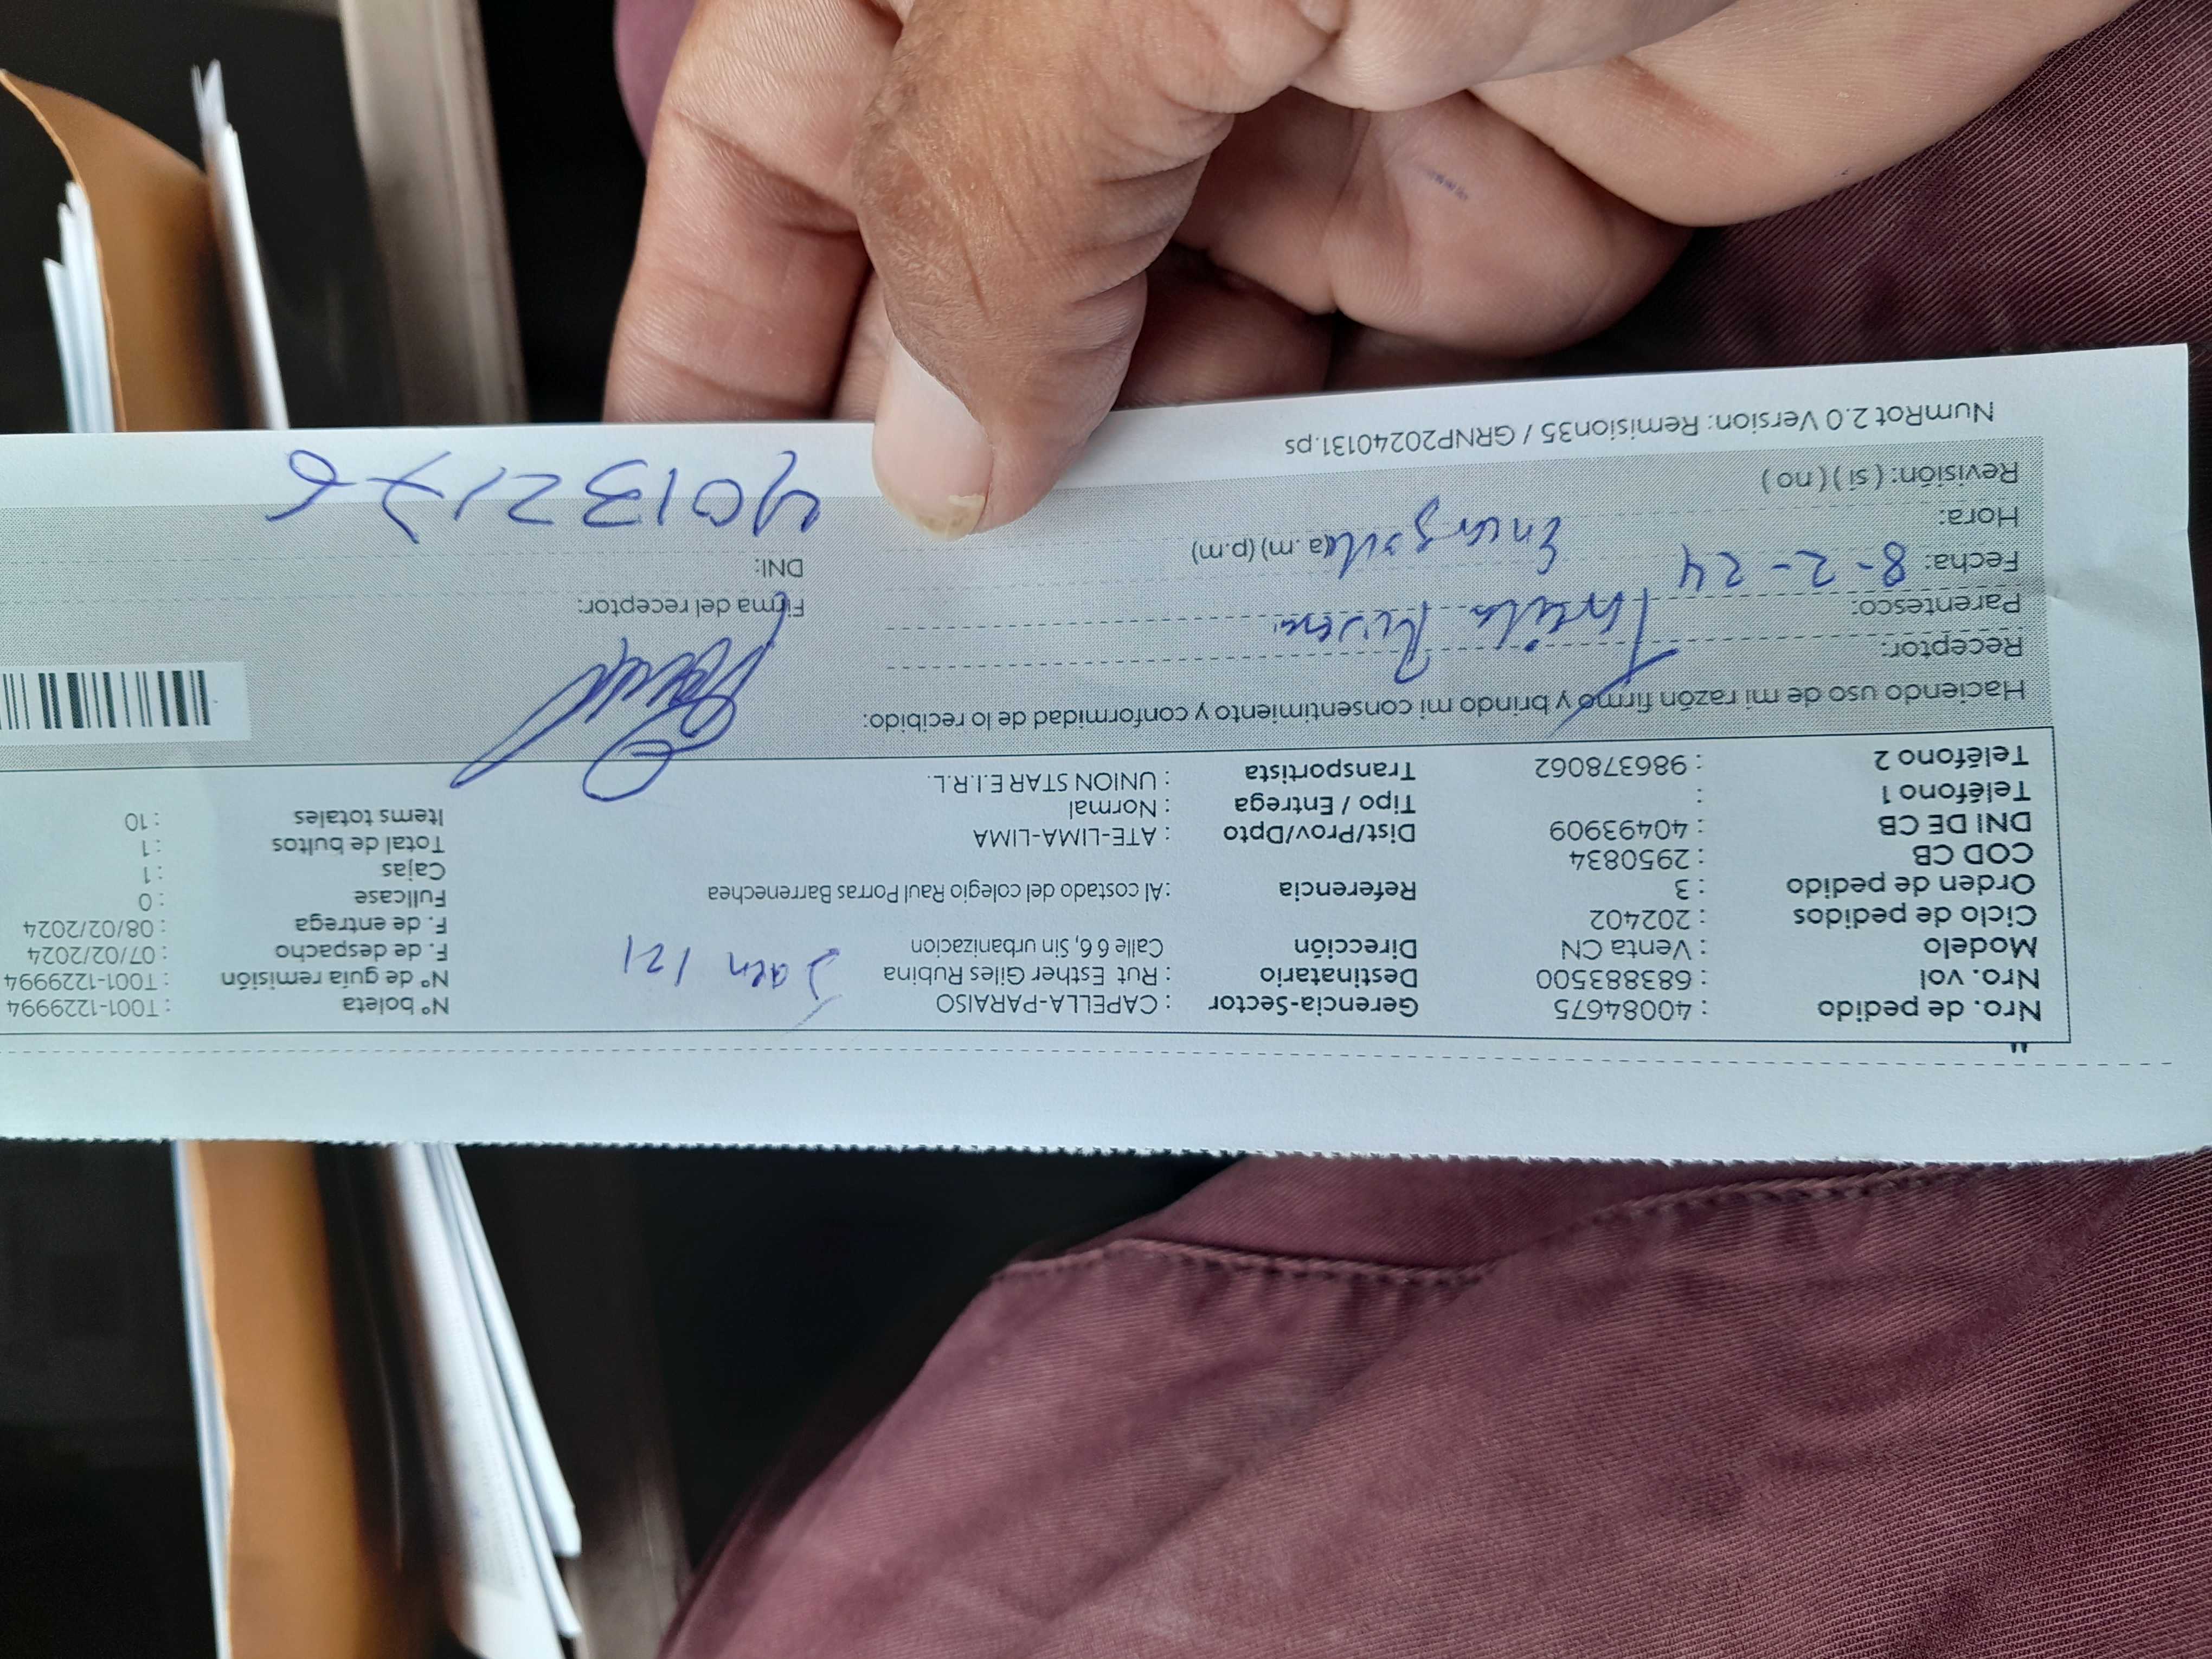 Nro. de pedido : 40084675 Gerencia-Sector : CAPELLA-PARAISO Nº boleta : T001-1229994
Nro. vol : 683883500 Destinatario : Rut Esther Giles Rubina Nº de guía remisión : T001-1229994
Modelo : Venta CN Dirección Calle 6 6, Sin urbanizacion F. de despacho : 07/02/2024
Ciclo de pedidos : 202402 F. de entrega : 08/02/2024
Orden de pedido : 3 Referencia : Al costado del colegio Raul Porras Barrenechea Fullcase : 0
COD CB : 2950834 Cajas : 1
DNI DE CB : 40493909 Dist/Prov/Dpto : ATE-LIMA-LIMA Total de bultos : 1
Teléfono 1 : Tipo / Entrega : Normal Items totales : 10
Teléfono 2 : 986378062 Transportista : UNION STAR E.I.R.L.
Haciendo uso de mi razón firmo y brindo mi consentimiento y conformidad de lo recibido:
Receptor: Rivera
Parentesco: Firma del receptor:
Fecha: 8-2-24 DNI: 40132176
Hora: (a.m) (p.m)
Revisión: ( si ) ( no )
NumRot 2.0 Version: Remision35 / GRNP20240131.ps